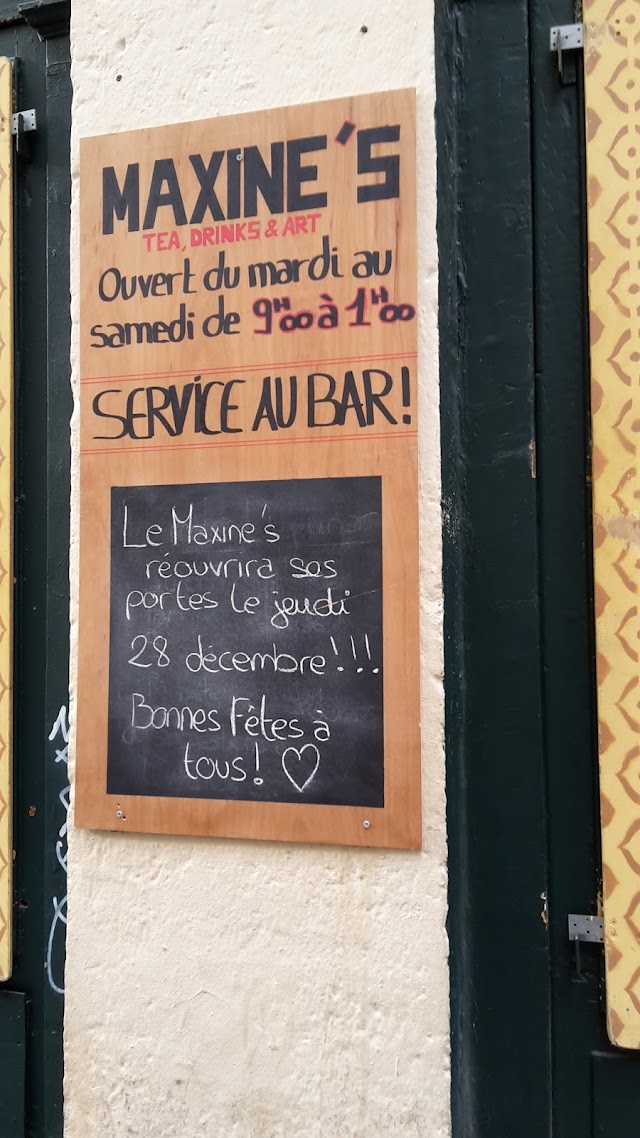 MAXINE'S
TEA, DRINKS & ART
Ouvert du mardi au
samedi de 9H00 à 1H00
SERVICE AU BAR!
Le Maxine's
réouvrira ses
portes le jeudi
28 décembre!!!
Bonnes Fêtes à
tous! ♡